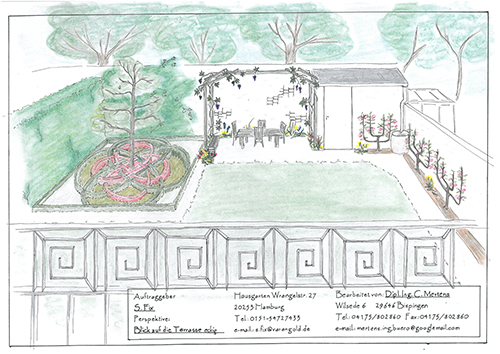 Auftraggeber
S. Fix
Perspektive:
Blick auf die Terrasse eckig
Hausgarten Wrangelstr. 27
20253 Hamburg
Tel: 0151-54727433
e-mail: s.fix@varengold.de
Bearbeitet von: Dipl. Ing. C. Mertens
Wilsede 6 29646 Bispingen
Tel: 04175/802860 Fax: 04175/802860
e-mail: mertens.ing.buero@googlemail.com